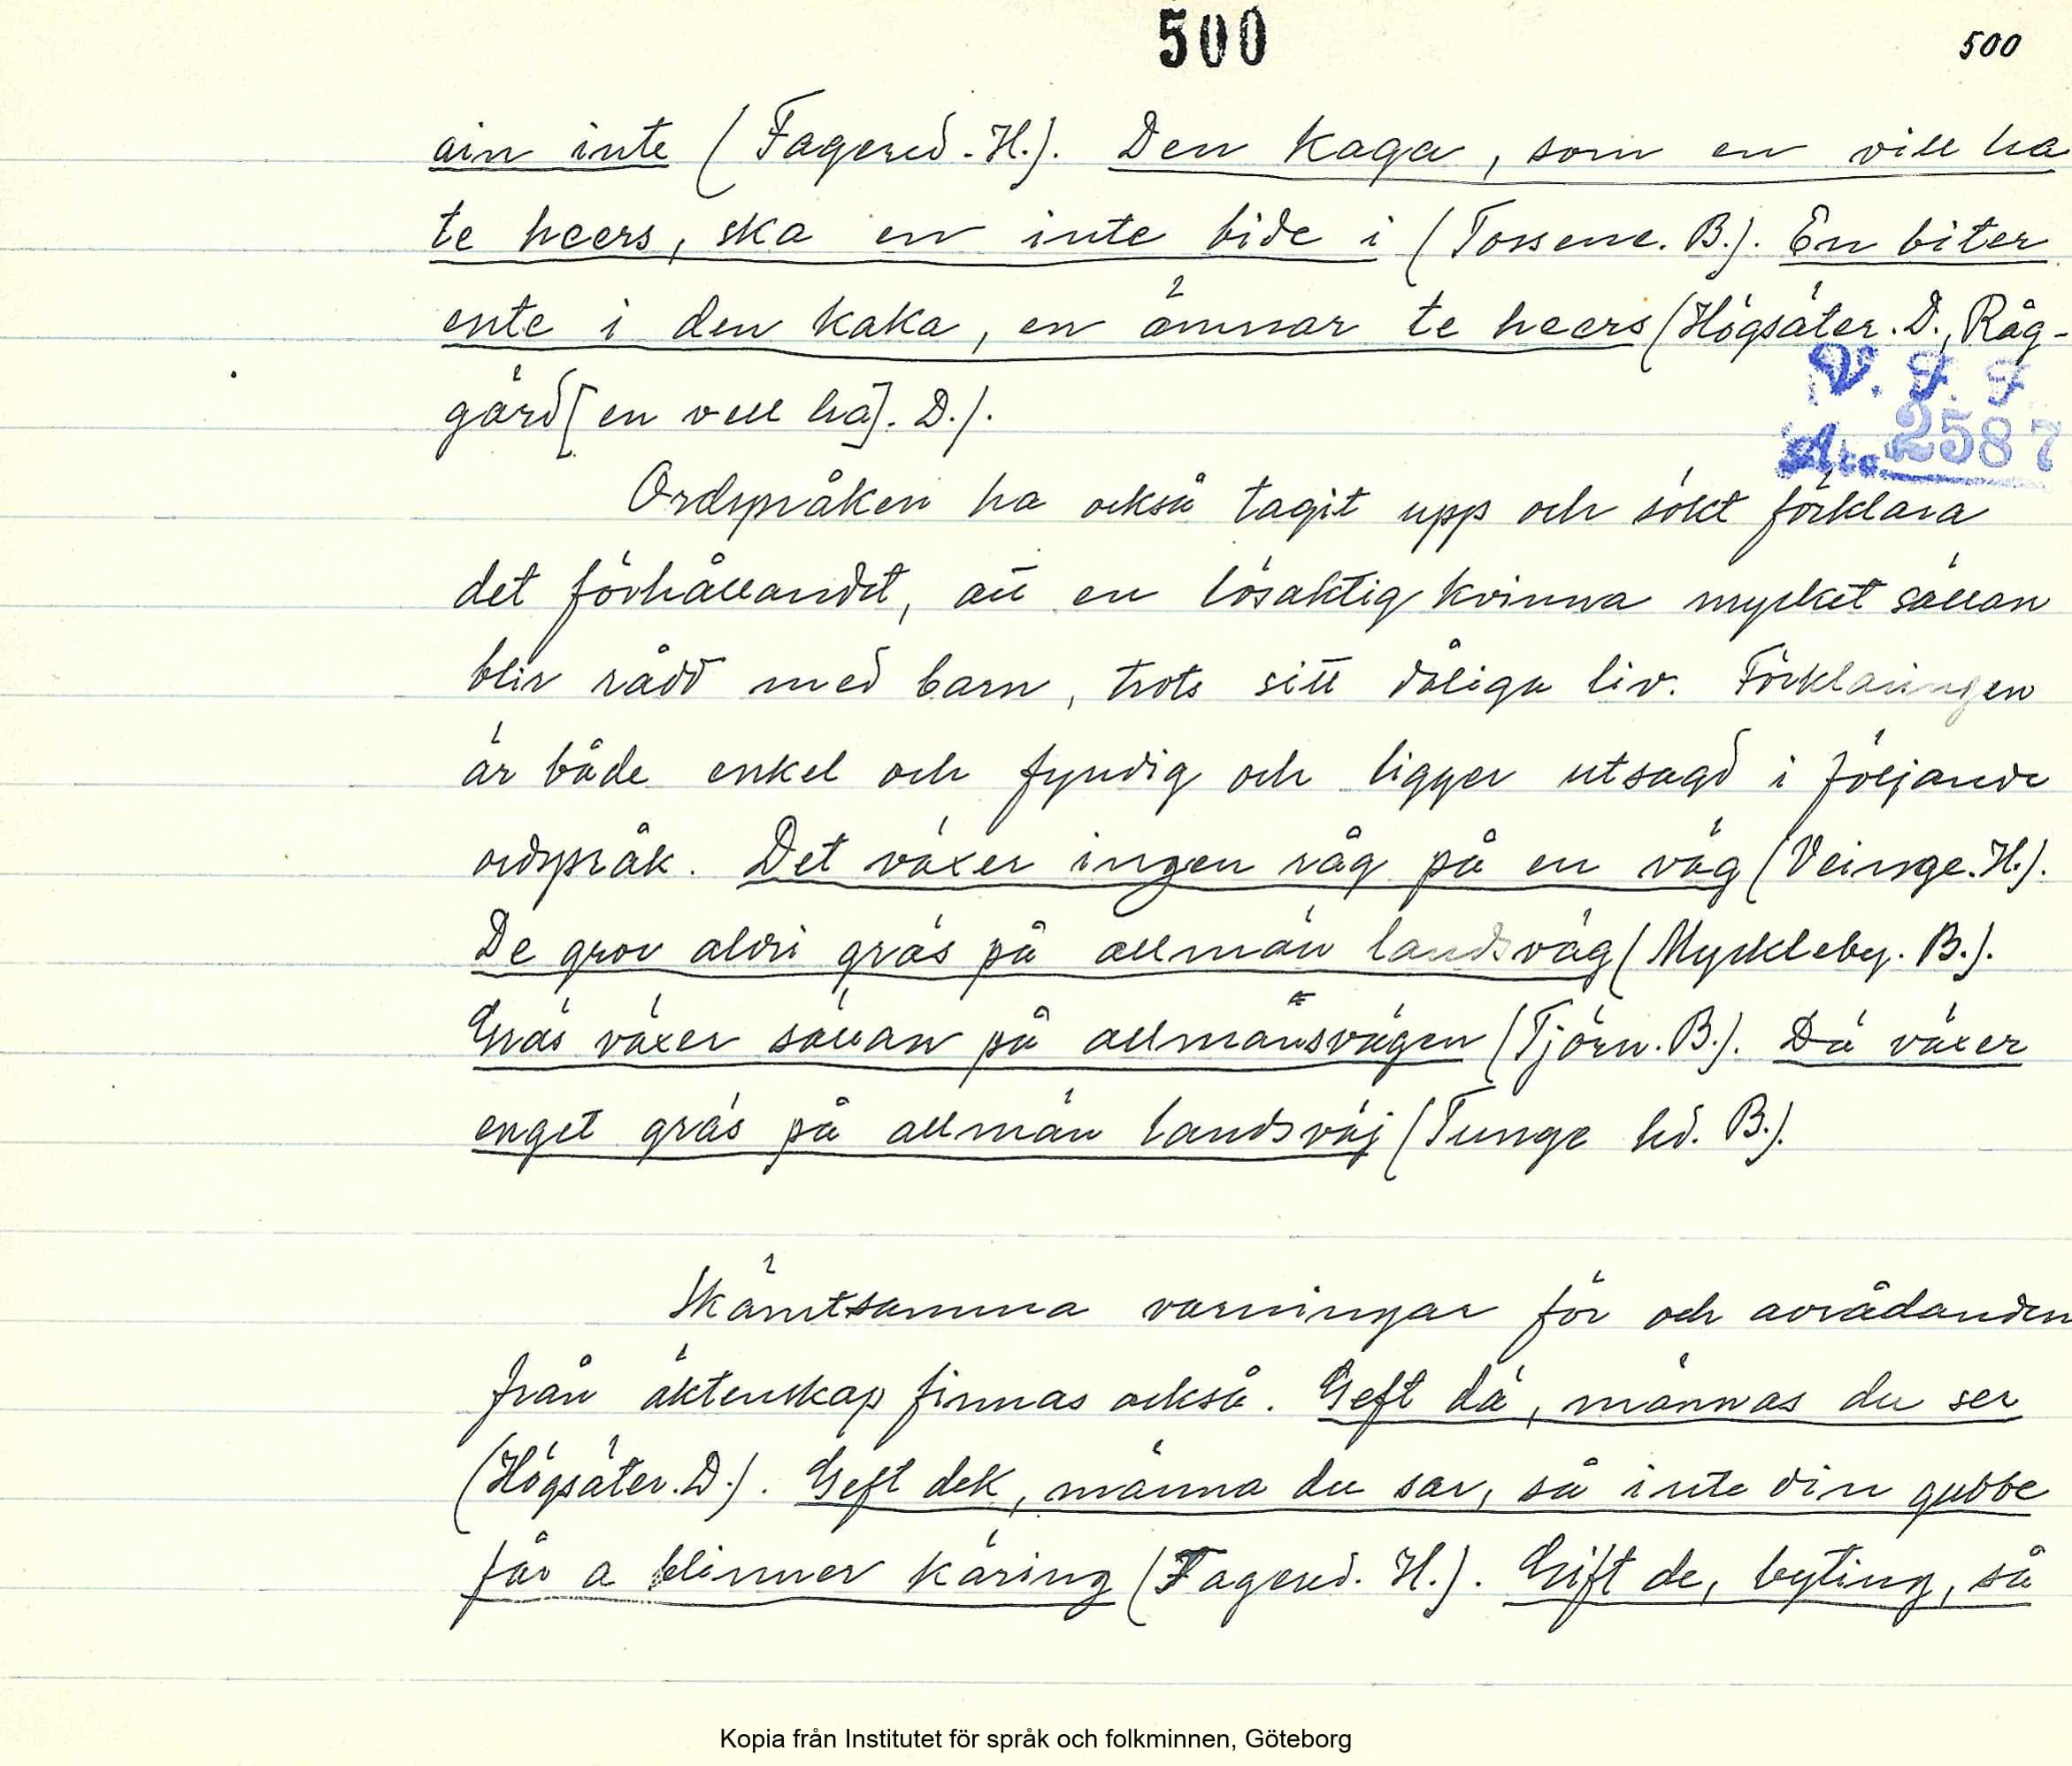 500
500
ain inte (Fagered. H.). Den kaga, som en vill ha
te heers, ska en inte bide i (Tossene. B.). En biter
ente i den kaka, en ämnar te heers (Högsäter. D., Råg-
gärd [en vell ha]. D.).
V. F. F
Acc. 2587
Ordspråken ha också tagit upp och sökt förklara
det förhållandet, att en lösaktig kvinna mycket sällan
blir rådd med barn, trots sitt dåliga liv. Förklaringen
är både enkel och fyndig och ligger utsagd i följande
ordspråk. Det växer ingen råg på en väg (Veinge. H.).
De grov aldri gräs på allmän landsväg (Myckleby. B.).
Gräs växer sällan på allmänsvägen (Tjörn. B.). Dä växer
enget gräs på allmän landsväj (Tunge hd. B.).
Skämtsamma varningar för och avrådanden
från äktenskap finnas också. Geft dä, männas du ser
(Högsäter. D.). Geft dek, männa du sar, så inte din gubbe
får a blinner käring (Fagered. H.). Gift de, byting, så
Kopia från Institutet för språk och folkminnen, Göteborg